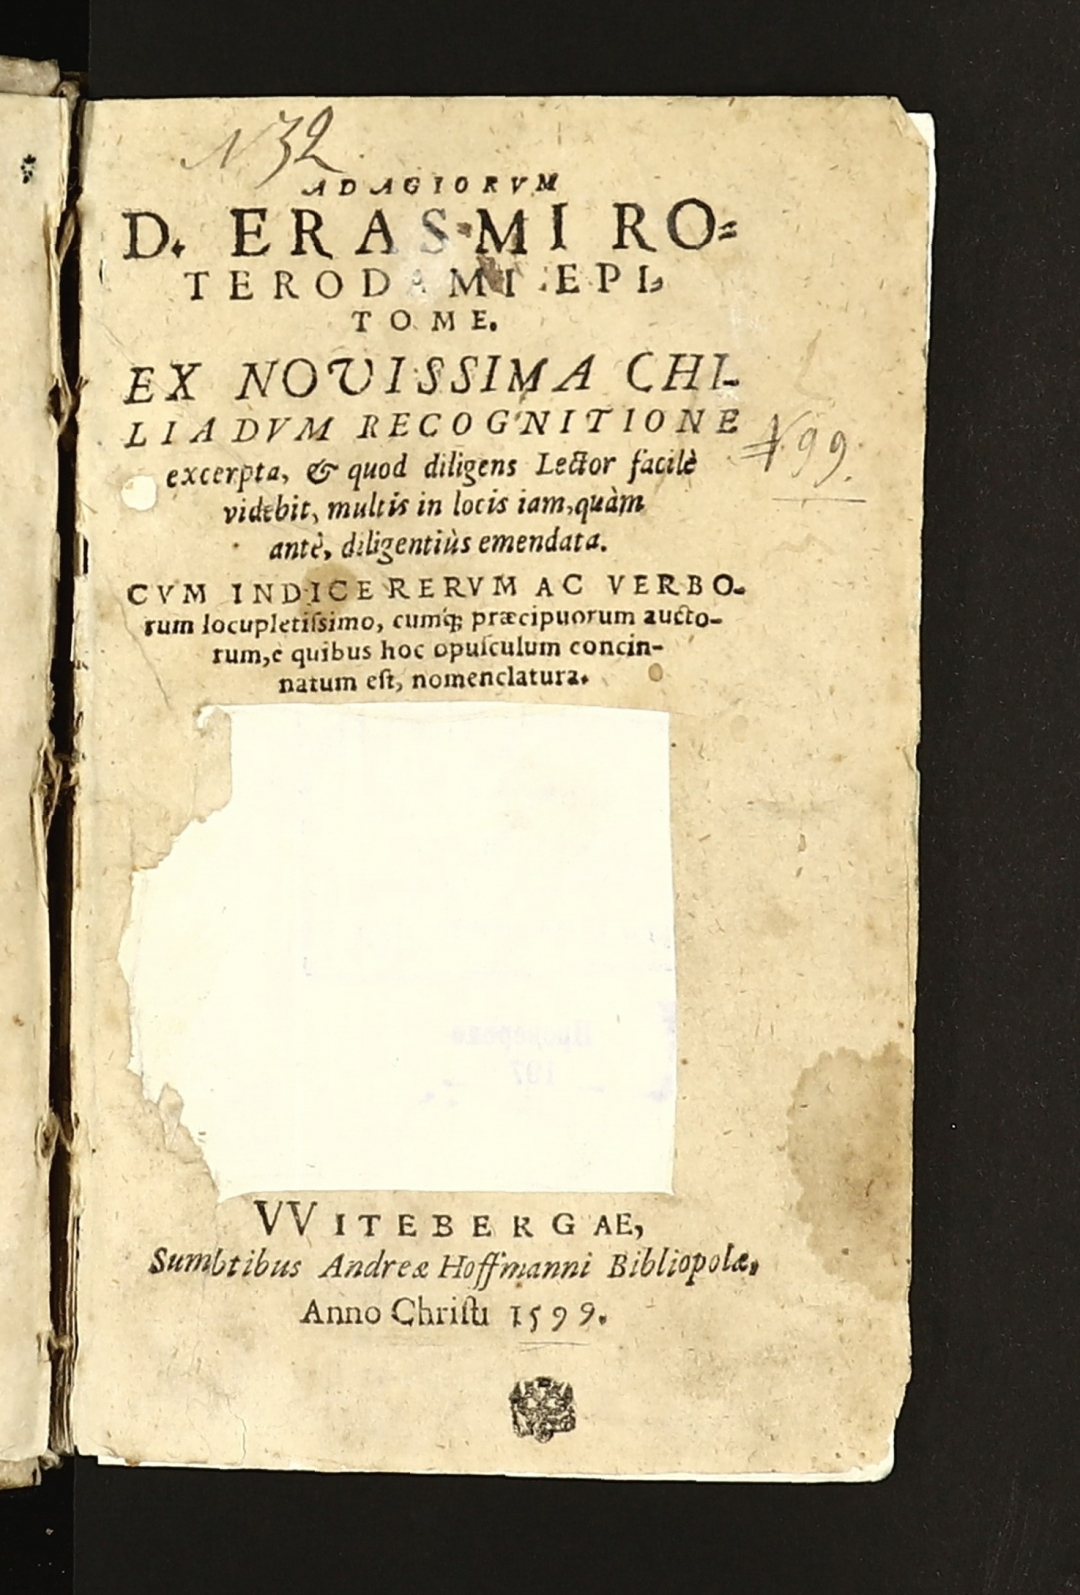 N 32
ADAGIORVM
D. ERASMI RO=
TERODAMI EPI,
TOME.
EX NOVISSIMA CHI-
LIADVM RECOGNITIONE
excerpta, & quod diligens Lector facilè
videbit, multis in locis iam, quàm
antè, diligentiùs emendata.
CVM INDICE RERVM AC VERBO-
rum locupletiſsimo, cumq́; præcipuorum aucto-
rum, è quibus hoc opuſculum concin-
natum eſt, nomenclatura.
N 99.
VVITEBERGAE,
Sumbtibus Andreæ Hoffmanni Bibliopolæ,
Anno Chriſti 1599.